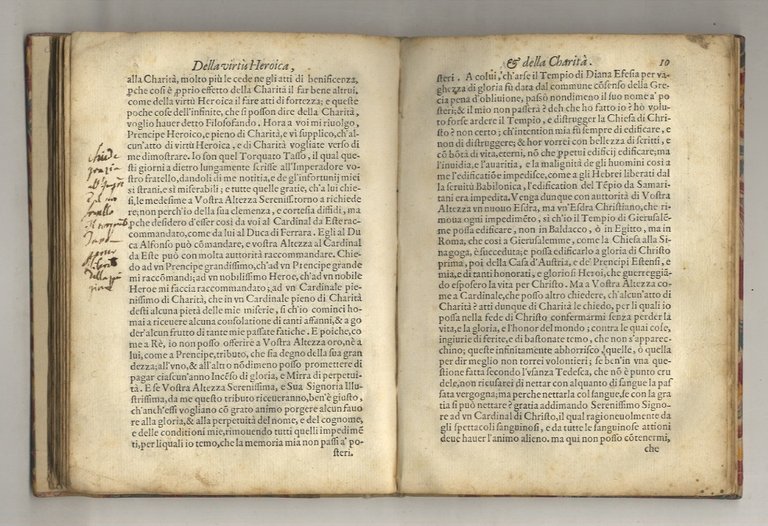 Della virtù Heroica,
alla Charità, molto più le cede ne gli atti di benificenza,
ꝑche cosi è ꝓprio effetto della Charità il far bene altrui,
come della virtù Heroica il fare atti di fortezza; e queste
poche cose dell'infinite, che si posson dice della Charità,
voglio hauer detto Filosofando. Hora a voi mi riuolgo,
Prencipe Heroico, e pieno di Charità, e vi supplico, ch'al-
cun'atto di virtù Heroica, e di Charità vogliate verso di
me dimostrare. Io son quel Torquato Tasso, il qual que
sti giorni a dietro lungamente scrisse all'Imperadore vo-
stro fratello, dandoli di me notitia, e de gl'infortunij miei
sì strani, e sì miserabili; e tutte quelle gratie, ch'a lui chie
si, le medesime a Vostra Altezza Sereniss. torno a richiede
re; non perch'io della sua clemenza, e cortesia diffidi, ma
ꝑche desidero d'esser così da voi al Cardinal da Este rac-
commandato, come da lui al Duca di Ferrara. Egli al Du
ca Alfonso può cōmandare, e vostra Altezza al Cardinal
da Este può con molta auttorità raccommandare. Chie-
do ad vn Prencipe grandissimo, ch'ad vn Prencipe grande
mi raccōmandi; ad vn nobilissimo Heroe, ch'ad vn nobile
Heroe mi faccia raccommandato; ad vn Cardinale pie-
nissimo di Charità, che in vn Cardinale pieno di Charità
desti alcuna pietà delle mie miserie, sì ch'io cominci ho-
mai a riceuere alcuna consolatione di tanti affanni, & a go
der'alcun frutto di tante mie passate fatiche. E poiche, co
me a Rè, io non posso offerire a Vostra Altezza oro, nè a
lui, come a Prencipe, tributo, che sia degno della sua gran
dezza; all'vno, & all'altō nōdimeno posso promettere di
pagar ciascun'anno Incēso di gloria, e Mirra di perpetui-
tà. E se Vostra Altezza Serenissima, e Sua Signoria Illu-
strissima, da me questo tributo riceueranno, ben'è giusto,
ch'anch'essi vogliano cō grato animo porgere alcun fauo
re alla gloria, & alla perpetuità del nome, e del cognome,
e delle conditioni mie, rimouendo tutti quelli impedimē
ti, per li quali io temo, che la memoria mia non passi a' po-
steri.
& della Charità. 10
steri. A colui, ch'arse il Tempio di Diana Efesia per va-
ghezza di gloria fù data dal commune cōsenso della Gre
cia pena d'obliuione, passò nondimeno il suo nome a' po
steri; & il mio non passerà? deh che hò fatto io? hò volu
to forse ardere il Tempio, e distrugger la Chiesa di Chri-
sto? è non certo; ch'intention mia fù sempre di edificare, e
non di distruggere; & hor vorrei con bellezza di scritti, e
cō bōtà di vita, eterni, nō che ꝑpetui edificij edificare; ma
l'inuidia, e l'auaritia, e la malignità de gli huomini così a
me l'edificatiōe impedisce, come a gli Hebrei liberati dal
la seruitù Babilonica, l'edification del Tēpio da Samari-
tani era impedita. Venga dunque con auttorità di Vostra
Altezza vn nuouo Esdra, ma vn'Esdra Christiano, che ri-
moua ogni impedimēto, sì ch'io il Tempio di Gierusalē-
me possa edificare, non in Baldacco, ò in Egitto, ma in
Roma, che così a Gierusalemme, come la Chiesa alla Si-
nagoga, è succeduta; e possa edificarlo a gloria di Christo
prima, poi della Casa d'Austria, e de' Prencipi Estensi, e
mia, e di tanti honorati, e gloriosi Heroi, che guerreggiā-
do esposero la vita per Christo. Ma a Vostra Altezza co-
me a Cardinale, che posso altro chiedere, ch'alcun'atto di
Charità? atti dunque di Charità le chiedo, per li quali io
possa nella fede di Christo confermarmi senza perder la
vita, e la gloria, e l'honor del mondo; contra le quai cose,
ingiurie di ferite, e di bastonate temo, che non s'apparec-
chino; queste infinitamente abborrisco, quelle, ò quella
per dir meglio non torrei volontieri; se ben'in vna que-
stione fatta secondo l'vsanza Tedesca, che nō è punto cru
dele, non ricusarei di nettar con alquanto di sangue la pas
sata vergogna; ma perche nettarla col sangue, se con la gra
tia si può nettare? gratia addimando Serenissimo Signo-
re ad vn Cardinal di Christo, il qual ragioneuolmente da
gli spettacoli sanguinosi, e da tutte le sanguinose attioni
deue hauer l'animo alieno. ma qui non posso cōtenermi,
che